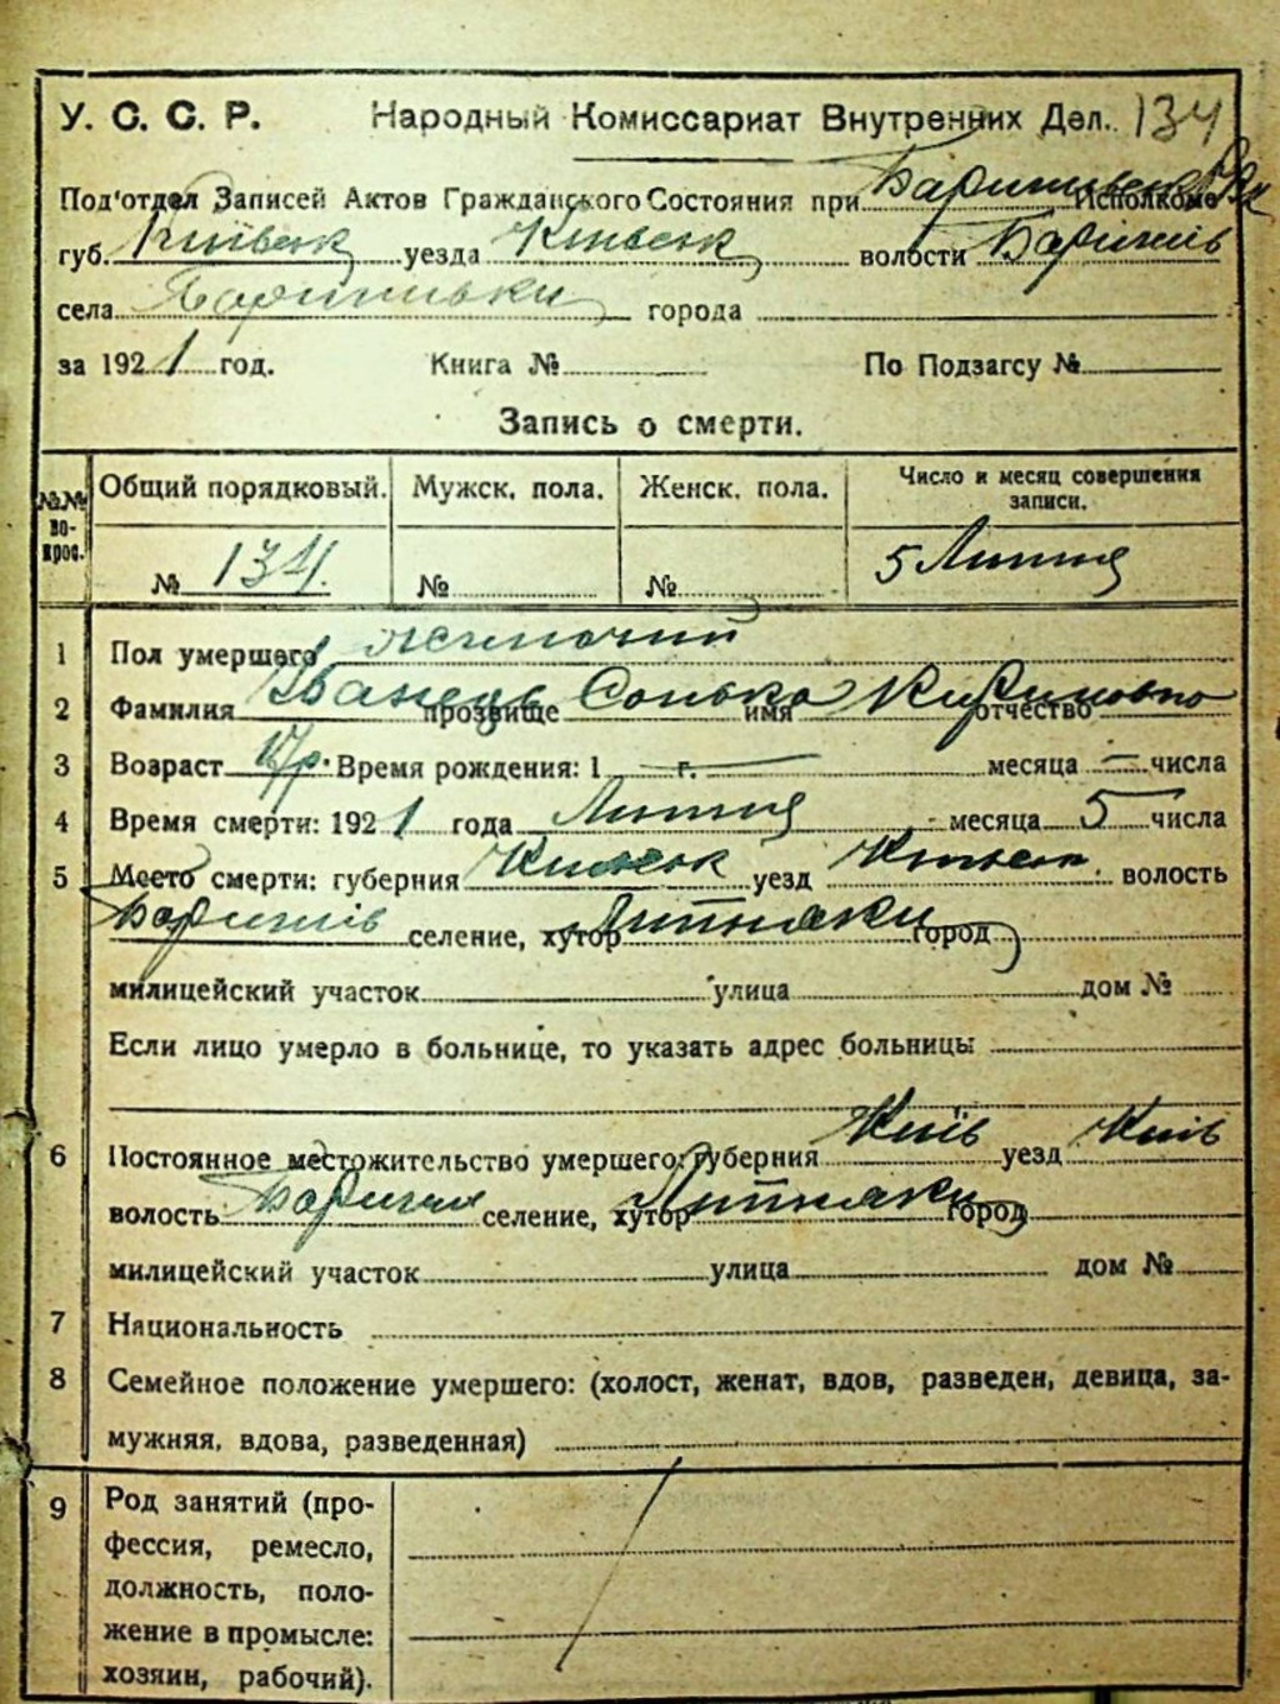 У. С. С. Р. Народный Комиссариат Внутренних Дел. 134
Под'отдел Записей Актов Гражданского Состояния при Исполкоме
губ. Київськ уезда Київськ волости Баришів
села Баришівки города
за 1921 год. Книга № По Подзагсу №
Запись о смерти.
№№ во- прос. Общий порядковый. Мужск. пола. Женск. пола. Число и месяц совершения записи.
№ 134. № № 5 Липня
1 Пол умершего
2 Фамилия прозвище Сонька имя отчество
3 Возраст Время рождения: 1 — г. — месяца — числа
4 Время смерти: 1921 года Липня месяца 5 числа
5 Место смерти: губерния Київськ уезд Київськ. волость
Баришів селение, хутор Липняки город
милицейский участок улица дом №
Если лицо умерло в больнице, то указать адрес больницы
6 Постоянное местожительство умершего: губерния Київ уезд Київ
волость селение, хутор Липняки город
милицейский участок улица дом №
7 Национальность
8 Семейное положение умершего: (холост, женат, вдов, разведен, девица, за-
мужняя, вдова, разведенная)
9 Род занятий (про-
фессия, ремесло,
должность, поло-
жение в промысле:
хозяин, рабочий).